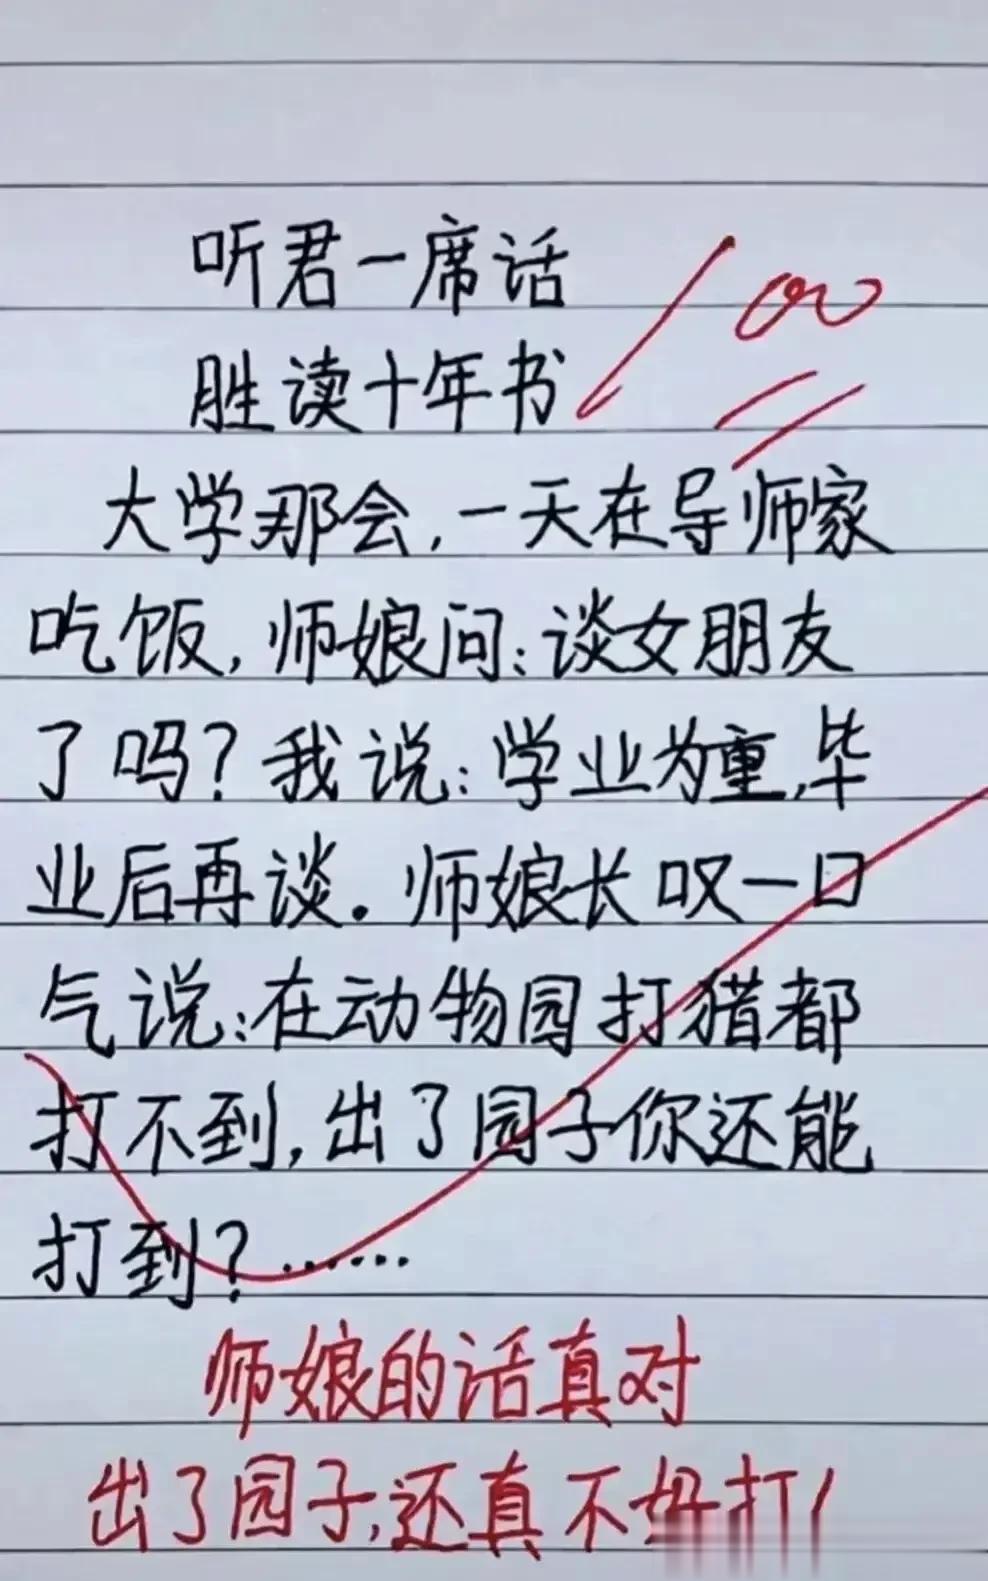 听君一席话
胜读十年书
100
大学那会,一天在导师家
吃饭,师娘问:谈女朋友
了吗?我说:学业为重,毕
业后再谈。师娘长叹一口
气说:在动物园打猎都
打不到,出了园子你还能
打到?……
师娘的话真对
出了园子,还真不好打!